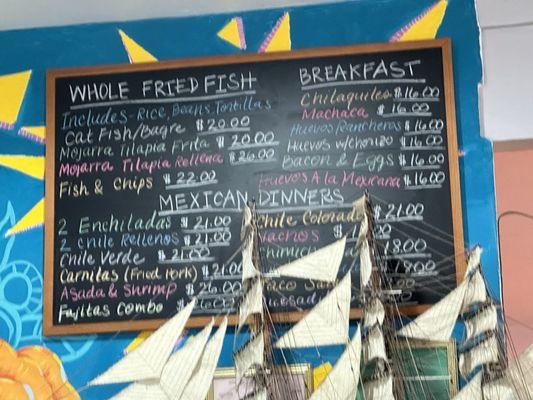 WHOLE FRIED FISH
Includes-Rice, Beans, Tortillas
Cat Fish/Bagre $20.00
Mojarra Tilapia Frita $20.00
Mojarra Tilapia Rellena $26.00
Fish & Chips $22.00
BREAKFAST
Chilaquiles $16.00
Machaca $16.00
Huevos Rancheros $16.00
Huevos w/chorizo $16.00
Bacon & Eggs $16.00
Huevos A la Mexicana $16.00
MEXICAN DINNERS
2 Enchiladas $21.00
2 Chile Rellenos $21.00
Chile Verde $21.00
Carnitas (Fried Pork) $21.00
Asada & Shrimp $26.00
Fajitas Combo $26.00
Chile Colorado $21.00
Nachos
18.00
18.00